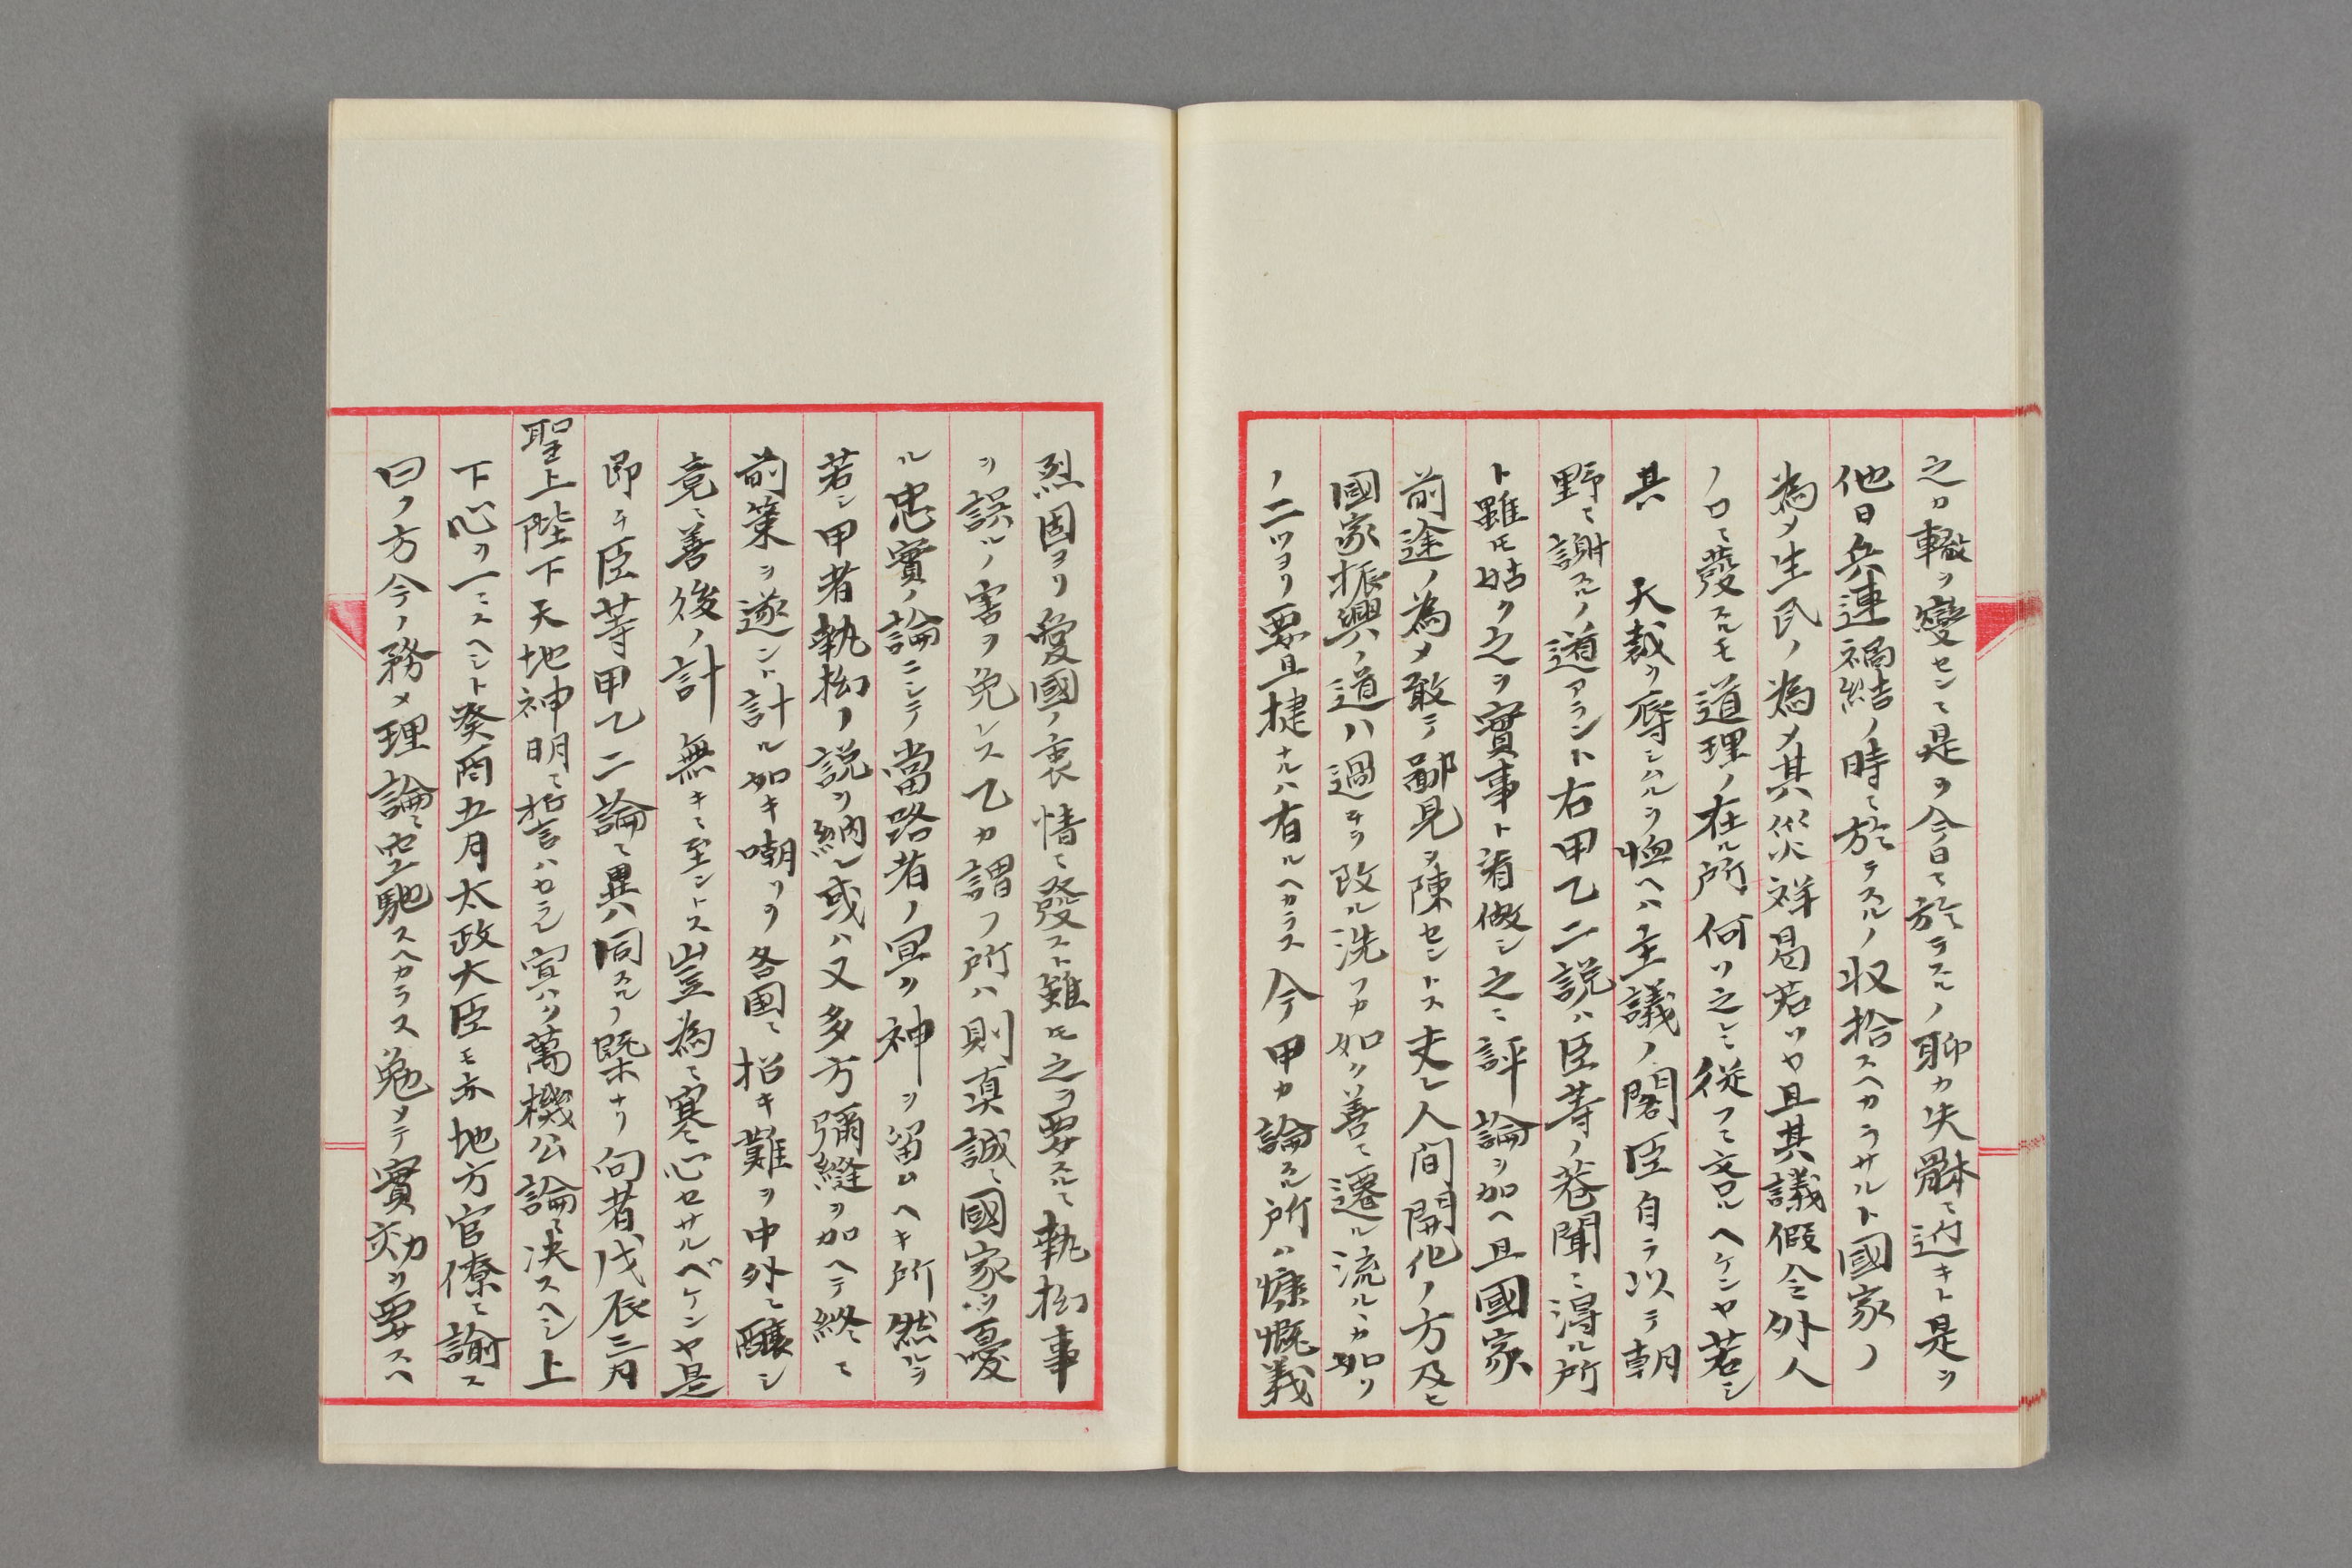 之カ轍ヲ變センニ是ヲ今日ニ於テスルノ聊カ失體ニ近キト是ヲ
他日兵連禍結ノ時ニ於テスルノ収拾スヘカラサルト國家ノ
為メ生民ノ為メ其災祥曷若ソヤ且其議假令外人
ノ口ニ發スルモ道理ノ在ル所何ソ之レニ従フニ吝ルヘケンヤ若シ
其 天裁ヲ辱シムルヲ恤ヘハ主議ノ閣臣自ラ以テ朝
野ニ謝スルノ道アラント右甲乙二説ハ臣等ノ巷聞ニ得ル所
ト雖モ姑ク之ヲ實事ト看做シ之ニ評論ヲ加ヘ且國家
前途ノ為メ敢テ鄙見ヲ陳セントス夫レ人間開化ノ方及ヒ
國家振興ノ道ハ過チヲ改ル洗フカ如ク善ニ遷ル流ルヽカ如リ
ノ二ツヨリ要且捷ナルハ有ルヘカラス今甲カ論スル所ハ慷慨義
烈固ヨリ愛國ノ衷情ニ發スト雖モ之ヲ要スルニ執拗事
ヲ誤ルノ害ヲ免レス乙カ謂フ所ハ則真誠ニ國家ヲ憂
ル忠實ノ論ニシテ當路者ノ宜ク神ヲ留ムヘキ所然ルヲ
若シ甲者執拗ノ説ヲ納レ或ハ又多方彌縫ヲ加ヘテ終ニ
前策ヲ遂ント計ル如キ嘲リヲ各國ニ招キ難ヲ中外ニ醸シ
竟ニ善後ノ計無キニ至ントス豈為ニ寒心セサルベケンヤ是
即チ臣等甲乙二論ニ異同スルノ槩ナリ向者戊辰三月
聖上陛下天地神明ニ誓ハセラレ宜ク萬機公論ニ决スヘシ上
下心ヲ一ニスヘシト癸酉五月太政大臣モ亦地方官僚ニ諭ス
曰ク方今ノ務メ理論ニ空馳スヘカラス勉メテ實効ヲ要スヘ